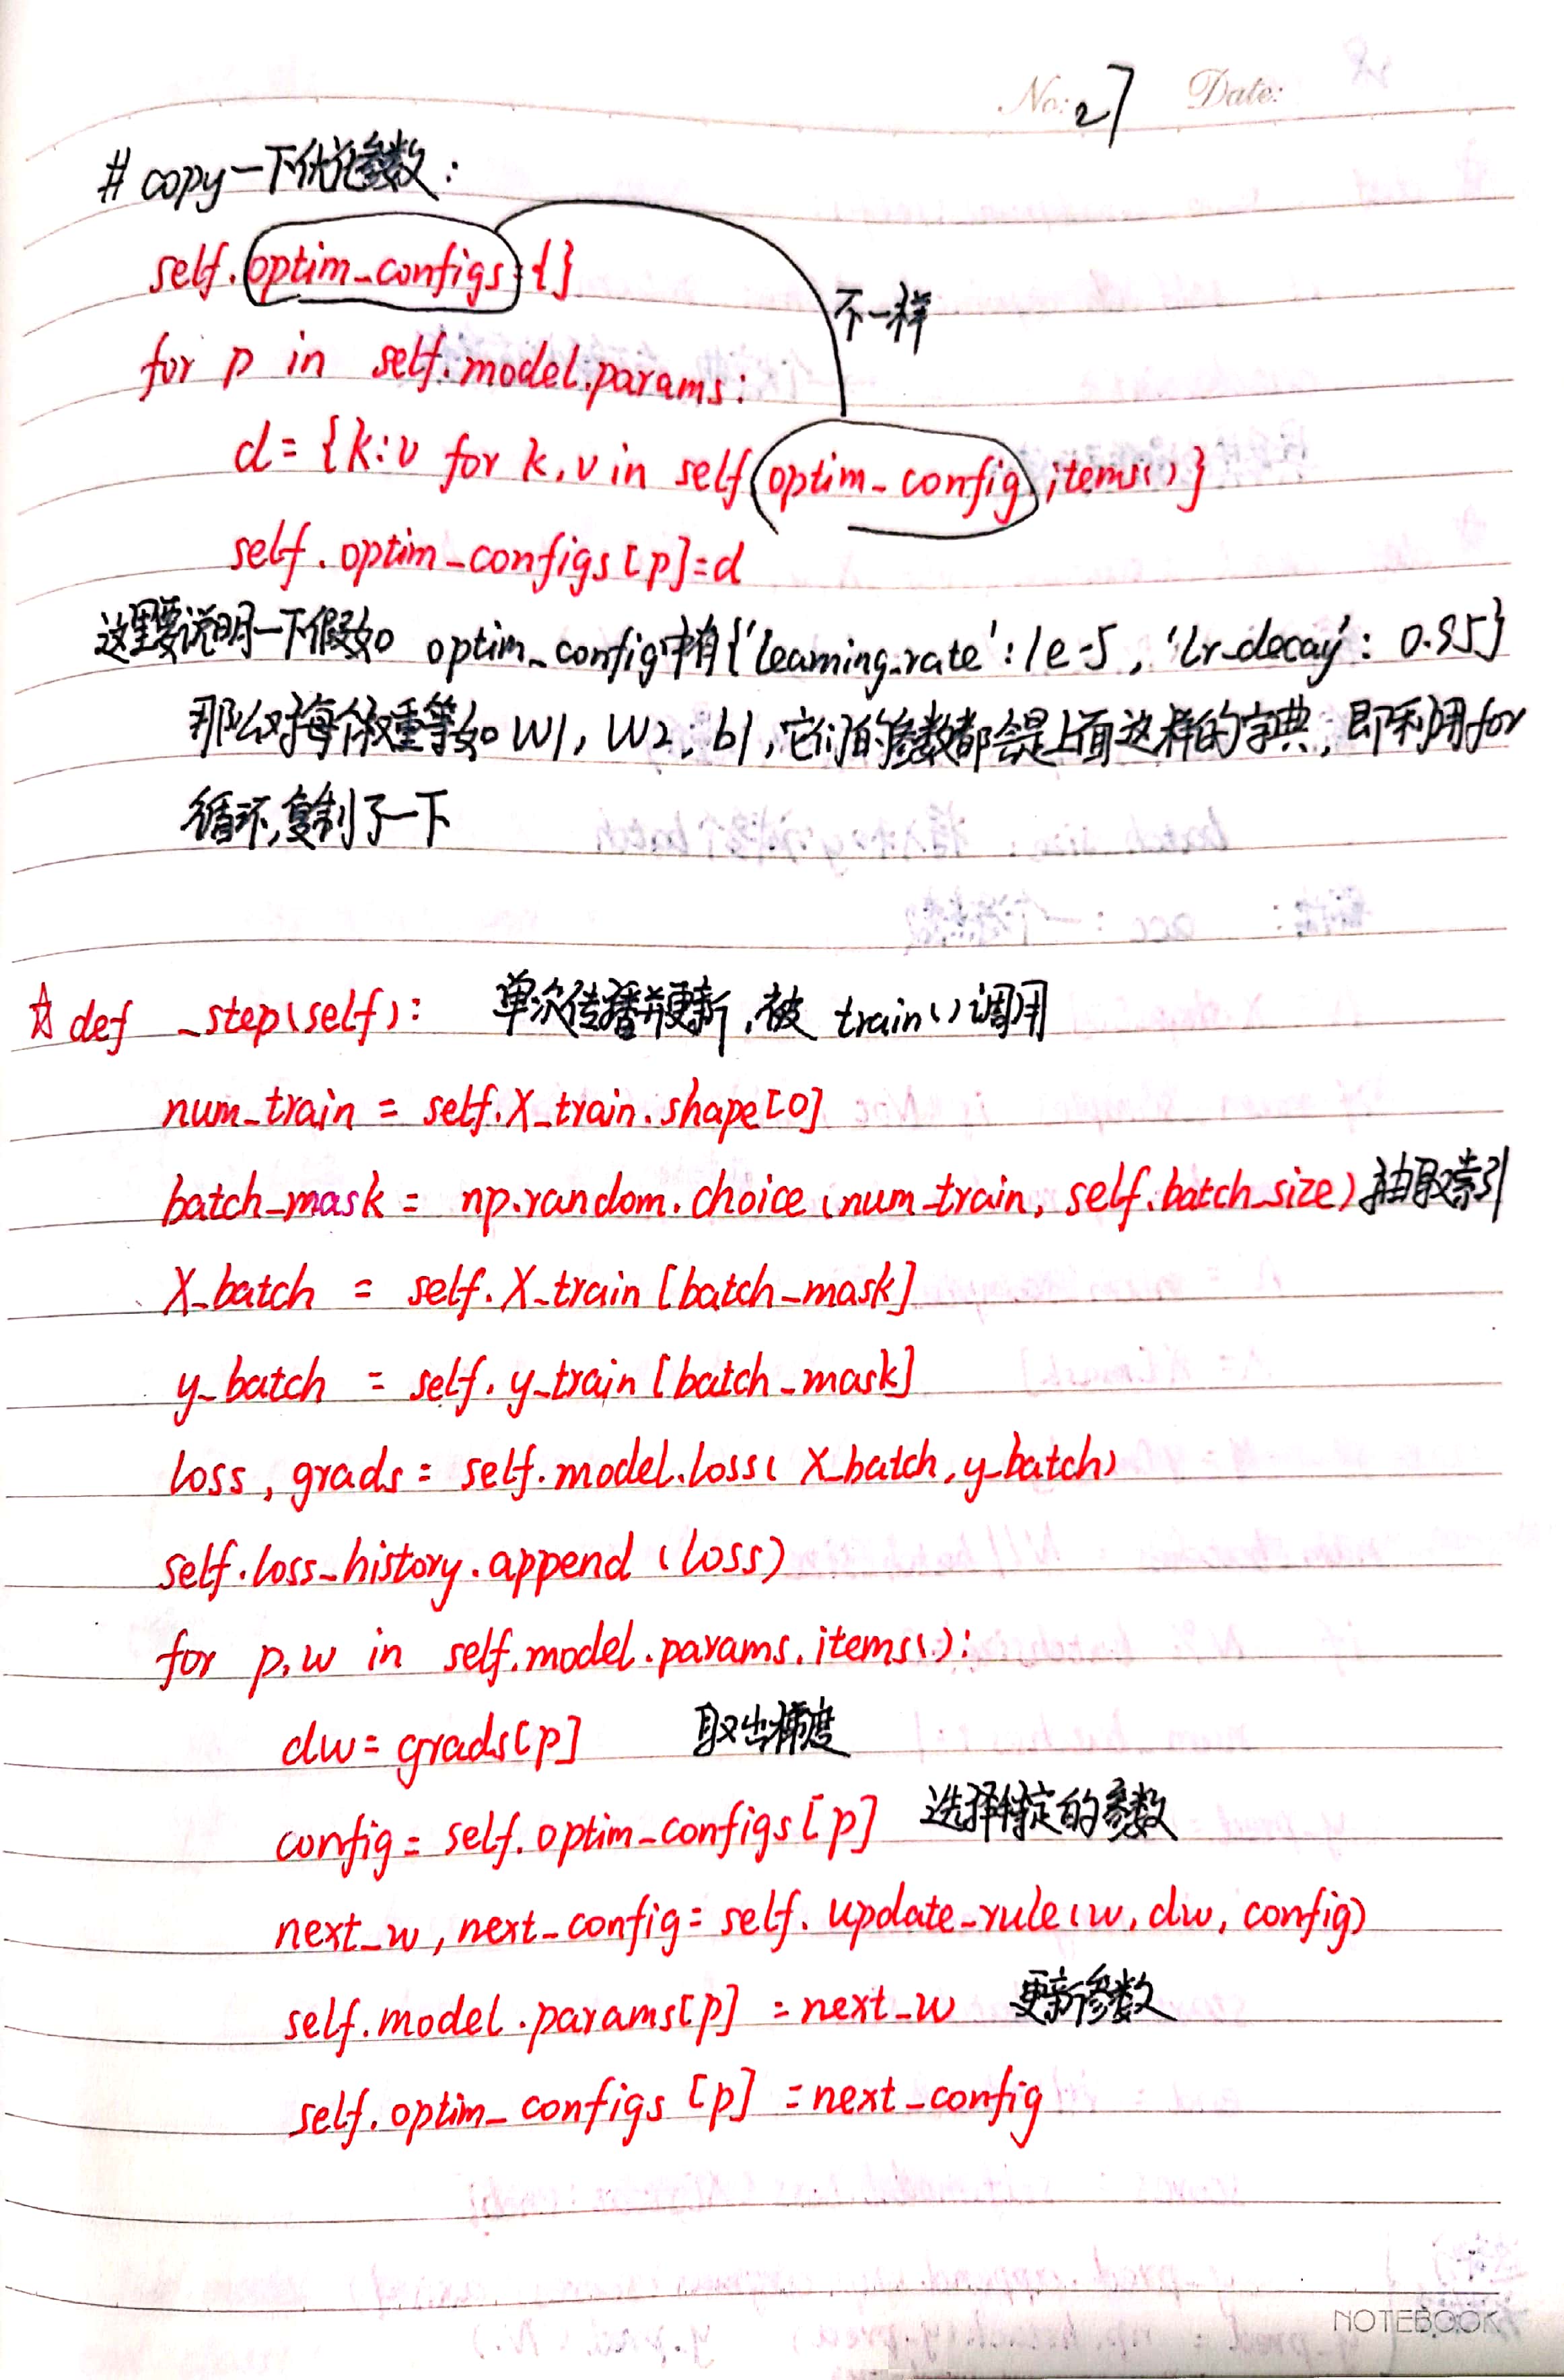 No: 27 Date:
# copy一下优化参数:
self.optim_configs={}
不一样
for p in self.model.params:
d={k:v for k,v in self.optim_config.items()}
self.optim_configs[p]=d
这里要说明一下假如 optim_config中有{'learning_rate':1e-5, 'lr_decay': 0.95}
那么对每个权重等如W1, W2, b1,它们的参数都会是上面这样的字典,即利用for
循环,复制了一下
☆ def _step(self): 单次传播并更新,被 train()调用
num_train = self.X_train.shape[0]
batch_mask = np.random.choice(num_train, self.batch_size) 抽取索引
X_batch = self.X_train[batch_mask]
y_batch = self.y_train[batch_mask]
loss, grads = self.model.loss(X_batch, y_batch)
self.loss_history.append(loss)
for p,w in self.model.params.items():
dw = grads[p] 取出梯度
config = self.optim_configs[p] 选择特定的参数
next_w, next_config = self.update_rule(w, dw, config)
self.model.params[p] = next_w 更新参数
self.optim_configs[p] = next_config
NOTEBOOK